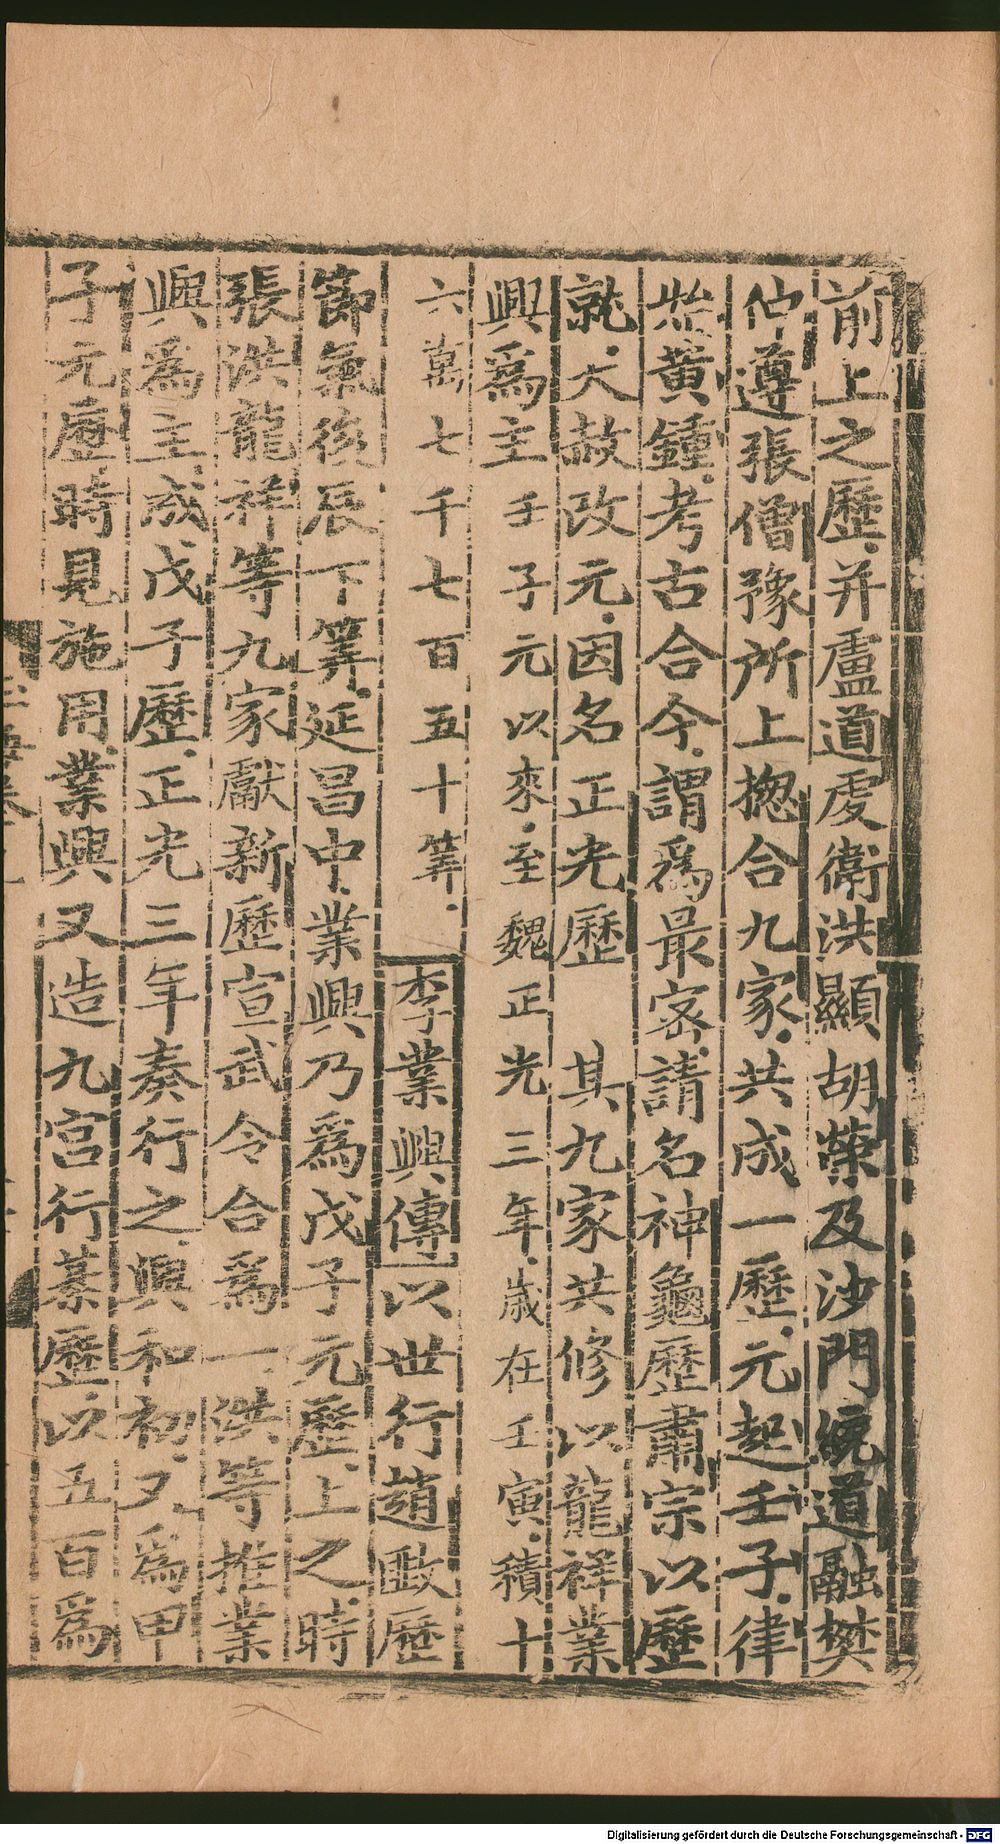 前上之歷并盧道虔衛洪顯胡榮及沙門統道融樊
仲遵張僧豫所上揔合九家共成一歷元起壬子律
始黃鍾考古合今謂為最密請名神龜歷肅宗以歷
就大赦改元因名正光歷 其九家共修以龍祥業
興為主壬子元以來至魏正光三年歲在壬寅積十
六萬七千七百五十筭 李業興傳以世行趙𢾺歷
節氣後辰下筭延昌中業興乃為戊子元歷上之時
張洪龍祥等九家獻新歷宣武令合為一洪等推業
興為主成戊子歷正光三年奏行之興和初又為甲
子元歷時見施用業興又造九宮行棊歷以五百為
Digitalisierung gefördert durch die Deutsche Forschungsgemeinschaft - DFG